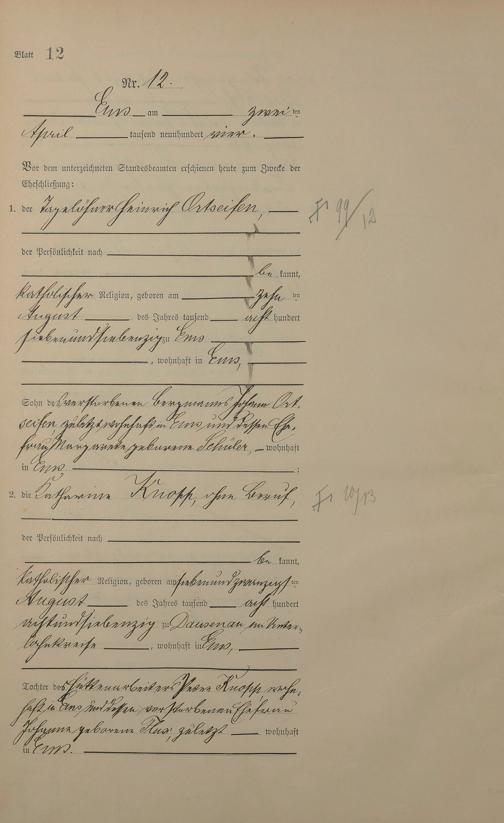 Blatt 12
Nr. 12.
Ems am zwei ten
April tausend neunhundert vier.
Vor dem unterzeichneten Standesbeamten erschienen heute zum Zwecke der
Eheschließung:
1. der Tagelöhner Heinrich Ortseifen,
der Persönlichkeit nach
be kannt,
katholischer Religion, geboren am zehn ten
August des Jahres tausend acht hundert
siebenundsiebenzig zu Ems
, wohnhaft in Ems,
Sohn des verstorbenen Bergmanns Johann Ort-
seifen, zuletzt wohnhaft in Ems und dessen Ehe-
frau Margarete geborene Schüler, wohnhaft
in Ems ;
2. die Katharine Knopp, ohne Beruf,
der Persönlichkeit nach
be kannt,
katholischer Religion, geboren am siebenundzwanzigsten
August des Jahres tausend acht hundert
achtundsiebenzig zu Dausenau im Unter-
lahnkreise , wohnhaft in Ems,
Tochter des Hüttenarbeiters Peter Knopp, wohn-
haft in Ems und dessen verstorbenen Ehefrau
Johanne geborene zuletzt wohnhaft
in Ems.